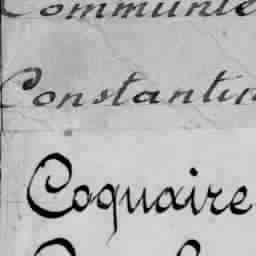 Communie
Constantin
Coquaire